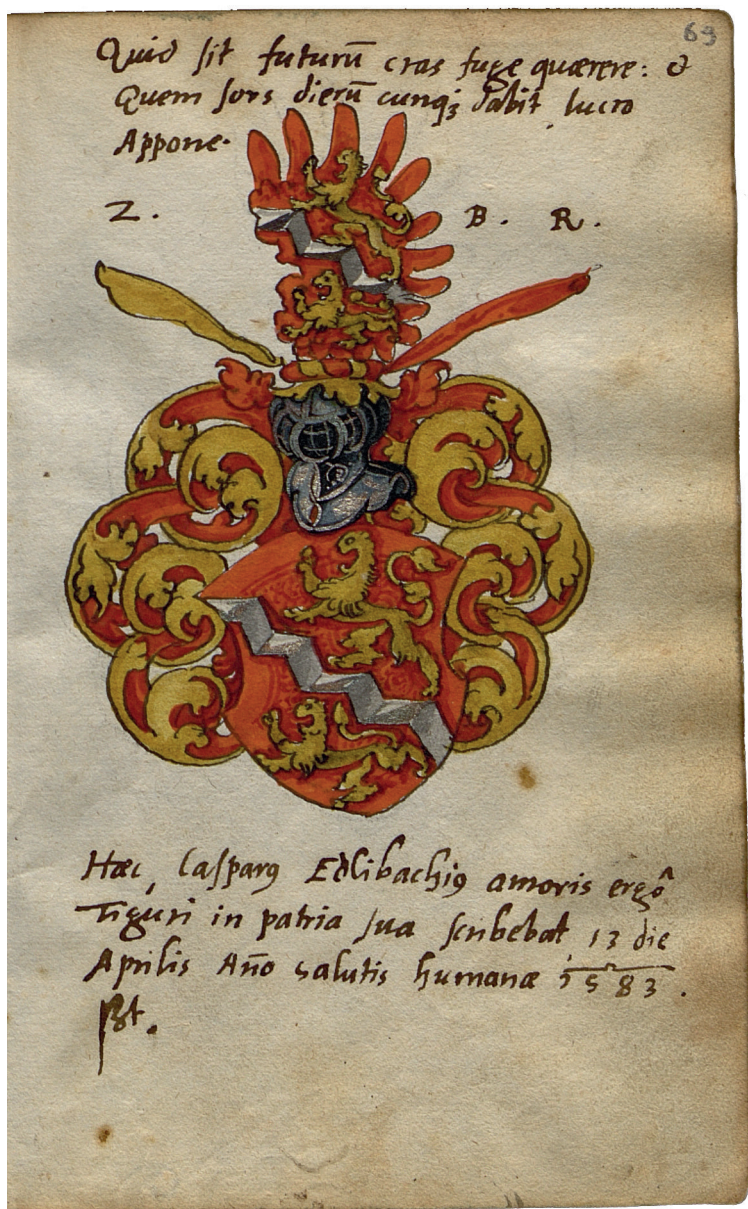 69
Quid sit futurū cras fuge quærere: &
Quem sors dierū cunq; dabit lucro
Appone.
Z. B. R.
Hæc Casparꝰ Edlibachiꝰ amoris ergô
Tiguri in patria sua scribebat 13 die
Aprilis Año salutis humanæ 1583.